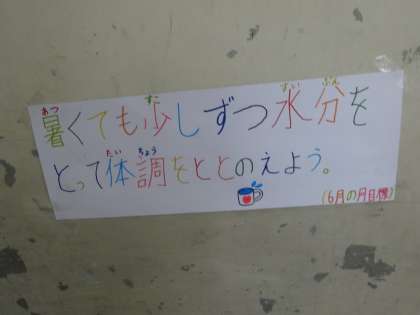 暑くても少しずつ水分を
とって体調をととのえよう。
(6月の月目標)